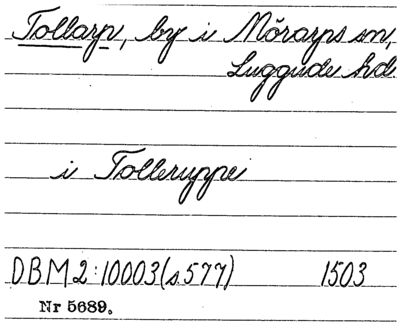 Tollarp, by i Mörarps sn,
Luggude hd
i Tolleruppe
DBM 2:10003 (s.577) 1503
Nr 5689.